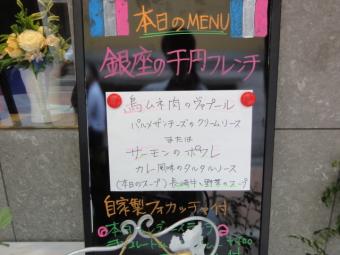 本日のMENU
銀座の千円フレンチ
鳥ムネ肉のヴァプール
パルメザンチーズのクリームソース
または
サーモンのポワレ
カレー風味のタルタルソース
(本日のスープ) 長崎牛と野菜のスープ
自家製フォカッチャ付